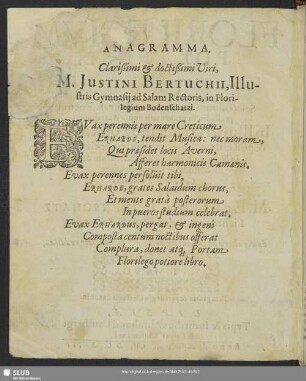 ANAGRAMMA.
Clarißimi & doctißimi Viri,
M. JUSTINI BERTUCHII, Illu-
stris Gymnasij ad Salam Rectoris, in Flori-
legium Bodenschatzi.
EVax perennis per mare Creticum
ERHARDE, tendit Musica: nec moram,
Qui præsidet locis Averni,
Afferet harmonicis Camœnis.
Evax perennes persolvit tibi,
ERHARDE, grates Salaidum chorus,
Et mente grata posterorum
In pueros studium celebrat.
Evax ERHARDUS, pergat, & ingenî
Composta centum noctibus offerat
Complura, donet atq; Portam
Florilego potiore libro.
SLUB